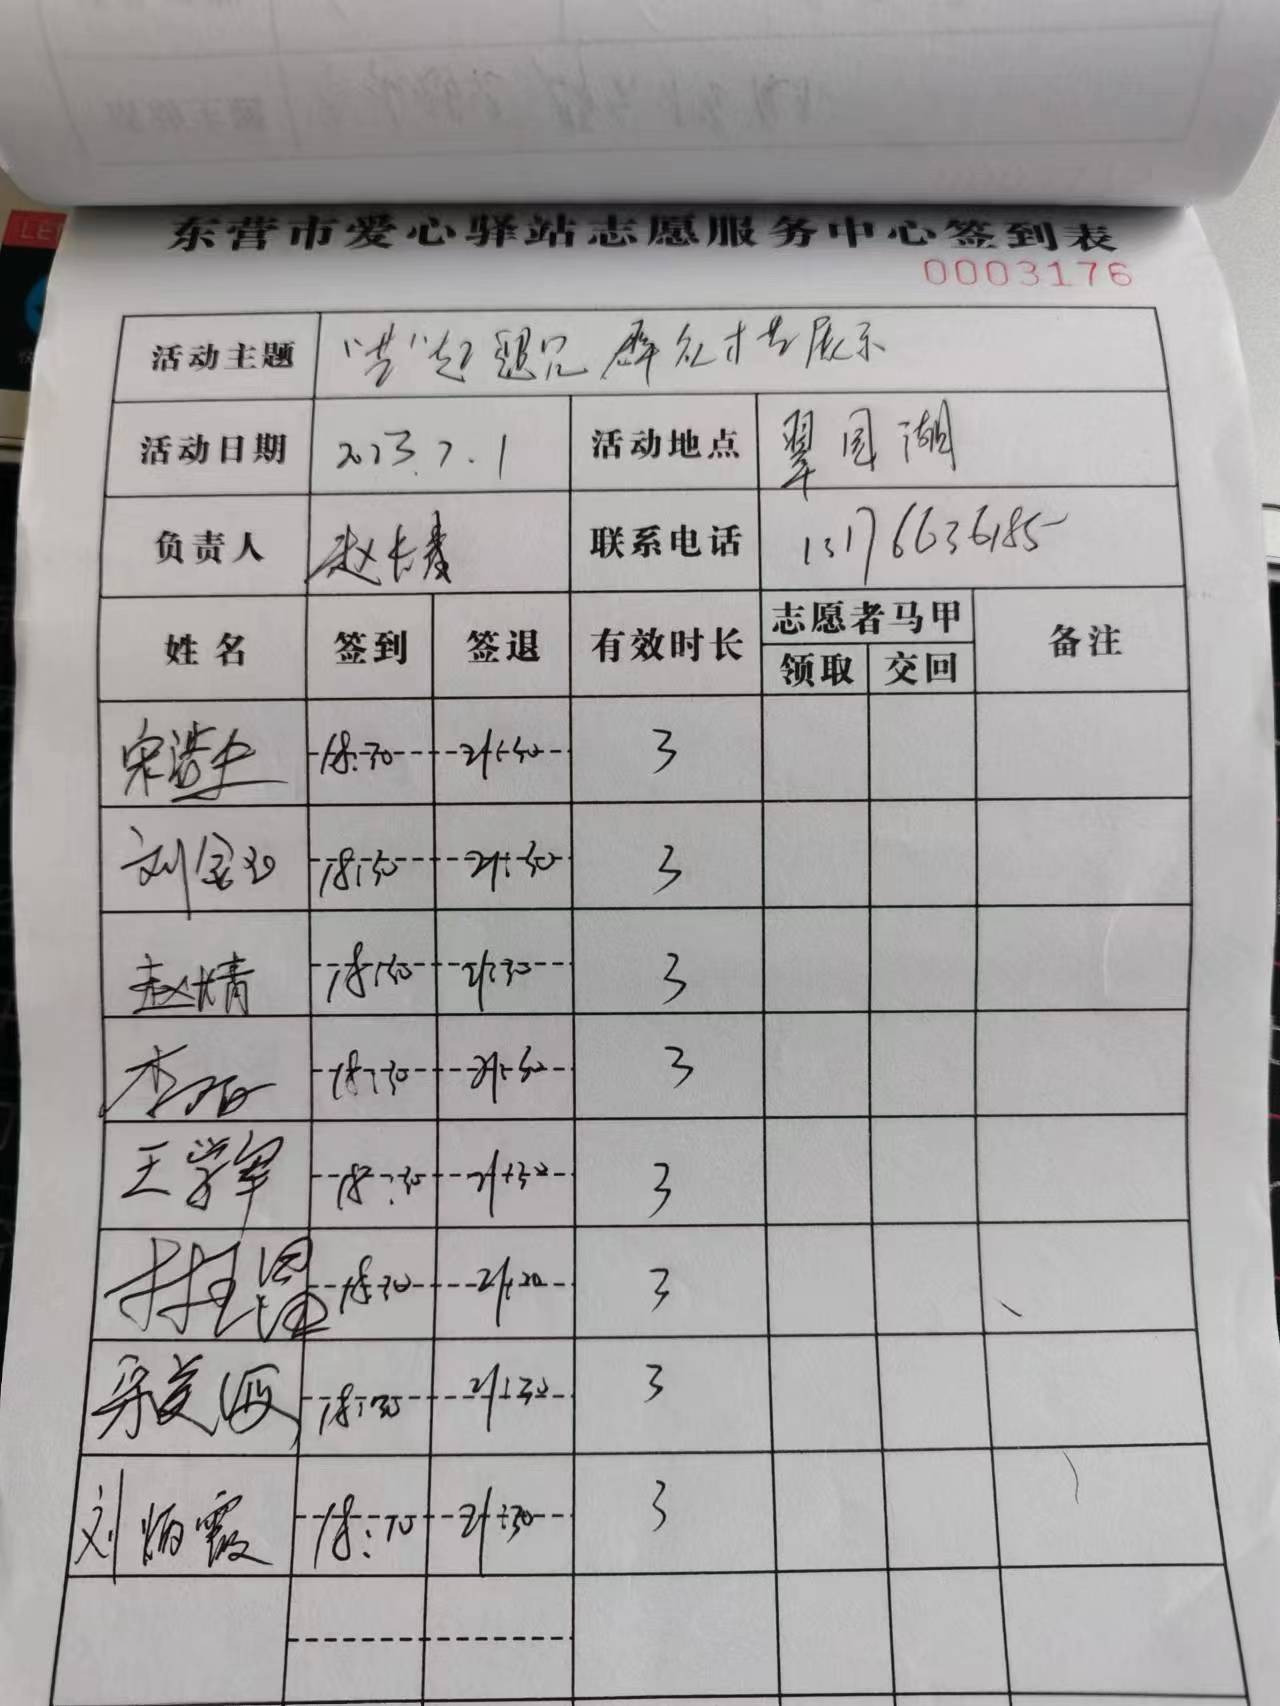 东营市爱心驿站志愿服务中心签到表
0003176
活动主题 "艺"起 群众才艺展示
活动日期 2023.7.1 活动地点 翠 湖
负责人 赵长青 联系电话 13176636185
姓名 签到 签退 有效时长 志愿者马甲 备注
领取 交回
宋 18:30 21:30 3
刘金 18:30 21:30 3
赵 18:30 21:30 3
李 18:30 21:30 3
王学军 18:30 21:30 3
18:30 21:30 3
18:30 21:30 3
刘炳霞 18:30 21:30 3